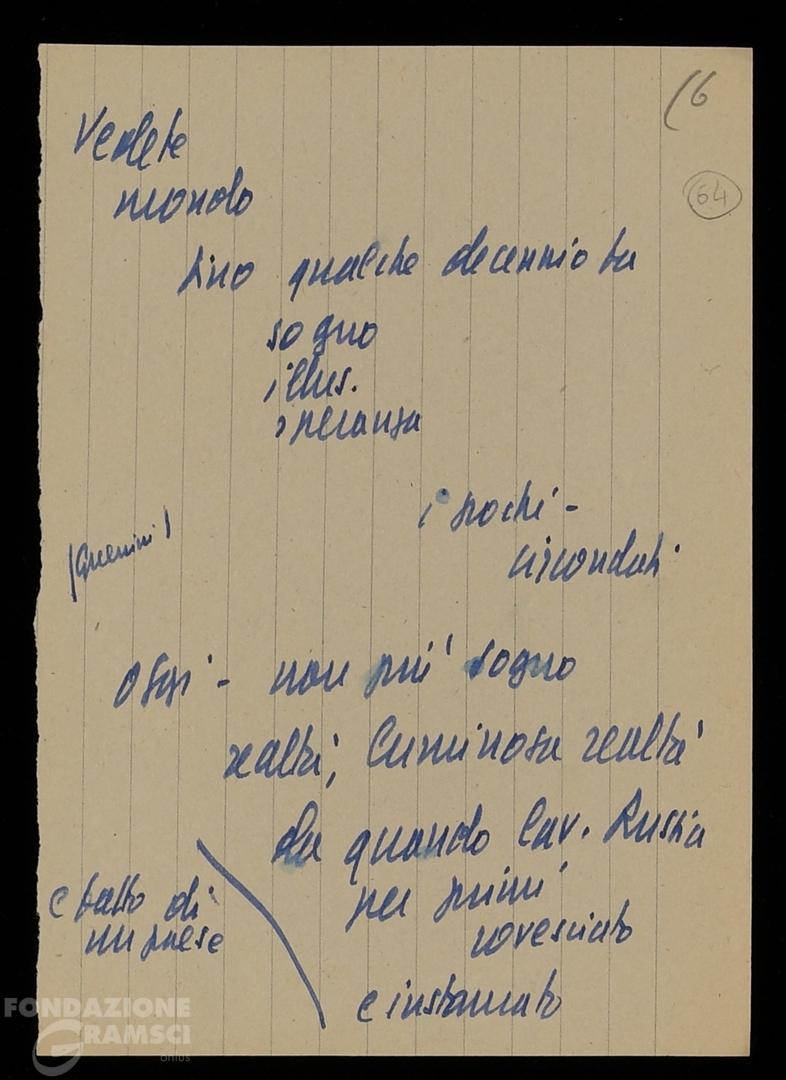 (6
64
Vedete
mondo
fino qualche decennio fa
sogno
illus.
speranza
i pochi -
circondati
oggi - non più sogno
realtà, luminosa realtà
da quando lav. Russia
per primi
rovesciato
e fatto di
un paese
e instaurato
FONDAZIONE
GRAMSCI
onlus